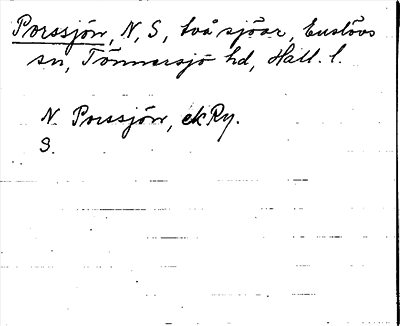 Porssjön, N, S, två sjöar, Enslövs
sn, Tönnersjö hd, Hall. l.
N. Porssjön, ekRy.
S.